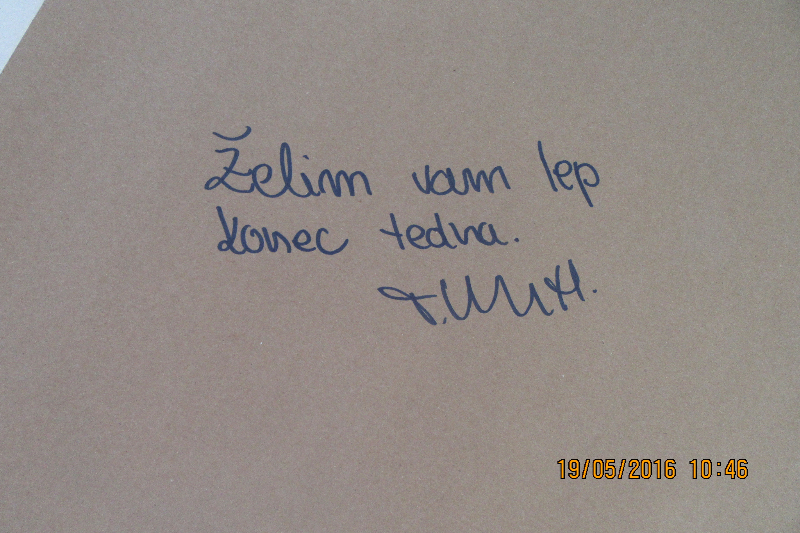 Želim vam lep
konec tedna.
19/05/2016 10:46